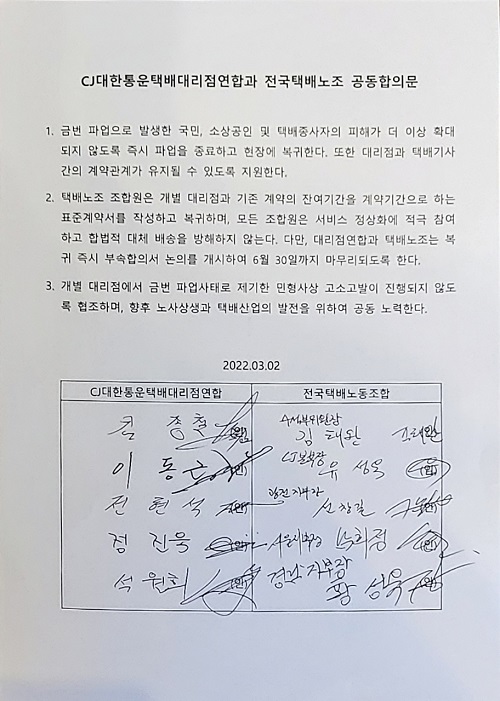 CJ대한통운택배대리점연합과 전국택배노조 공동합의문
1. 금번 파업으로 발생한 국민, 소상공인 및 택배종사자의 피해가 더 이상 확대
되지 않도록 즉시 파업을 종료하고 현장에 복귀한다. 또한 대리점과 택배기사
간의 계약관계가 유지될 수 있도록 지원한다.
2. 택배노조 조합원은 개별 대리점과 기존 계약의 잔여기간을 계약기간으로 하는
표준계약서를 작성하고 복귀하며, 모든 조합원은 서비스 정상화에 적극 참여
하고 합법적 대체 배송을 방해하지 않는다. 다만, 대리점연합과 택배노조는 복
귀 즉시 부속합의서 논의를 개시하여 6월 30일까지 마무리되도록 한다.
3. 개별 대리점에서 금번 파업사태로 제기한 민형사상 고소고발이 진행되지 않도
록 협조하며, 향후 노사상생과 택배산업의 발전을 위하여 공동 노력한다.
2022.03.02
CJ대한통운택배대리점연합 전국택배노동조합
종철 (인) 수석부위원장 김태완 (인)
이동근 (인) CJ본부장 유성욱 (인)
전현석 (인) 지부장 (인)
정진욱 (인) (인)
석원희 (인) 지부장 황성욱 (인)